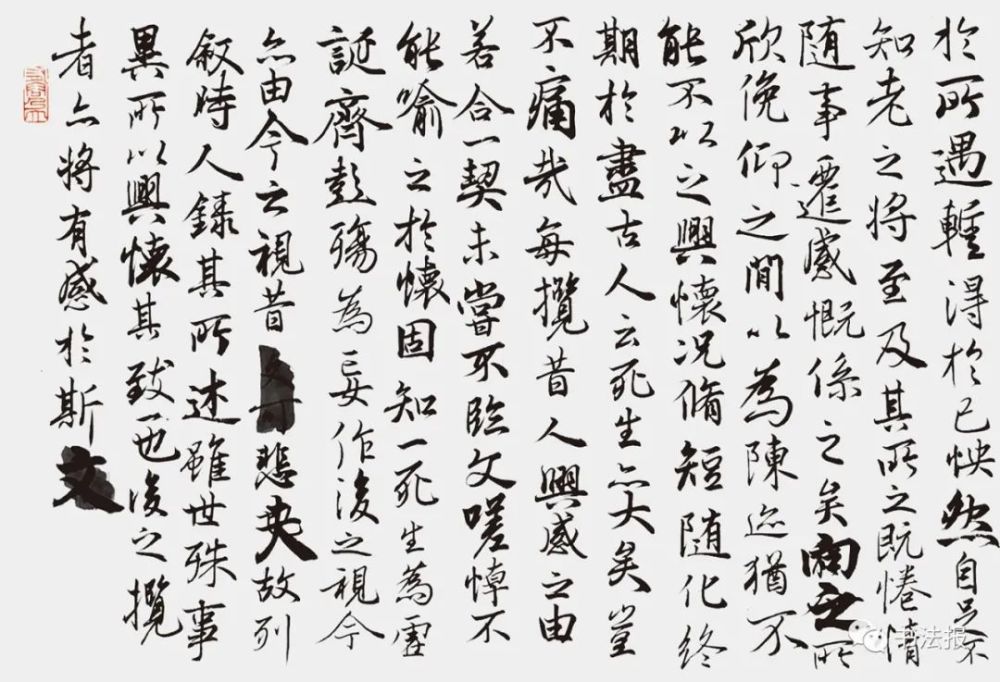 於所遇蹔得於己怏然自足不
知老之将至及其所之既惓情
随事遷感慨係之矣向之所
欣俛仰之閒以為陳迹猶不
能不以之興懷况脩短随化終
期於盡古人云死生亦大矣豈
不痛哉每攬昔人興感之由
若合一契未嘗不臨文嗟悼不
能喻之於懷固知一死生為虛
誕齊彭殤為妄作後之視今
亦由今之視昔悲夫故列
叙時人録其所述雖世殊事
異所以興懷其致一也後之攬
者亦将有感於斯文
书法报